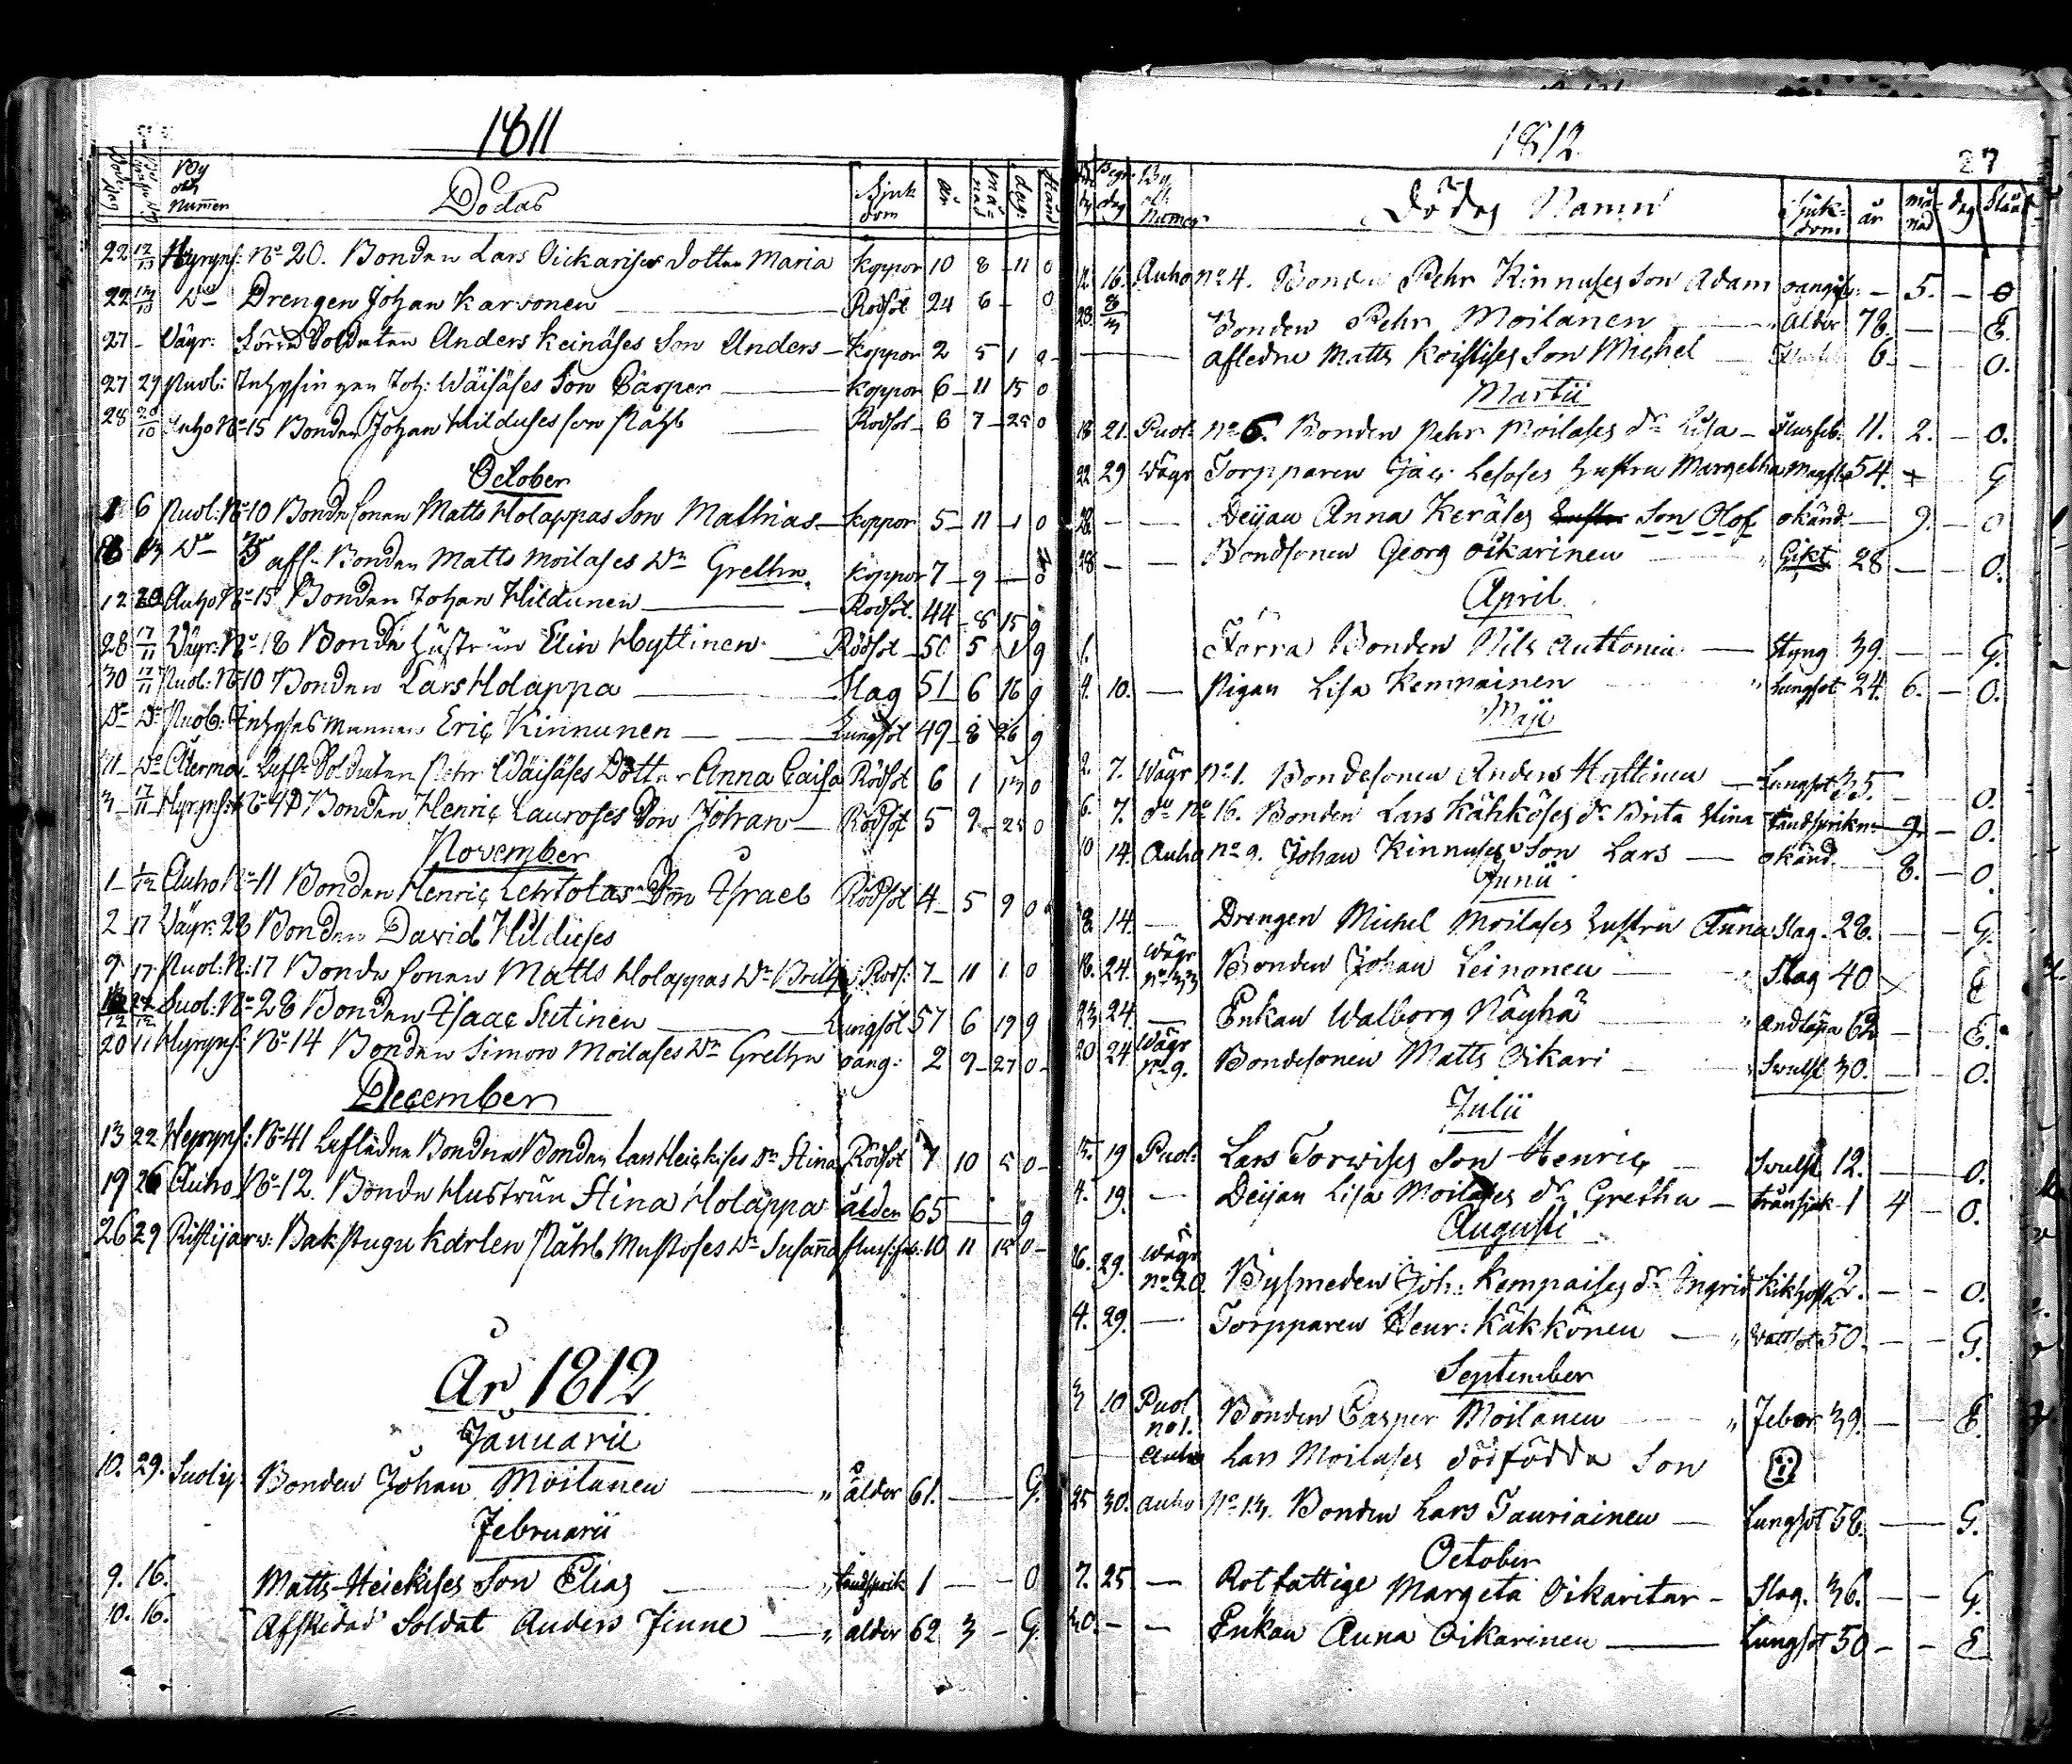 1811
By och Numer Dödas Sjukdom år månad dag: stånd
22 12/10 Hyryns: No 20. Bonden Lars Oickarises dotter Maria koppor 10 8 11 0
22 13/10 Do Drengen Johan Karvonen Rödsot 24 6 - 0
27 - Väyr: Förra Soldaten Anders Keinäses Son Anders koppor 2 5 1 0
27 29 Puol: Inhysingen Joh: Wäisäses Son Casper koppor 6 11 15 0
28 20/10 Auho No 15 Bonden Johan Hilduses son Påhl Rodsot 6 7 25 0
October
1 6 Puol: No 10 Bondesonen Matts Holappas Son Mathias koppor 5 11 1 0
8 13 Do afl. Bonden Matts Moilases Dr Gretha koppor 7 9 - 0
12 20 Auho No 15 Bonden Johan Hildunen Rodsot. 44 8 15 g
28 17/11 Väyr: No 18 Bonde hustrun Elin Hyttinen Rödsot 50 5 1 g
30 17/11 Puol: No 10 Bonden Lars Holappa Slag 51 6 16 g
Do Do Puol: Inhyses mannen Eric Kinnunen Lungsot 49 8 26 g
11 Do Alerma Soldaten Pehr Wäisäses Dotter Anna Caisa Rödsot 6 1 13 0
3 17/11 Hyryns: No 47 Bonden Henric Lauroses Son Johan Rödsot 5 9 25 0
November
1 1/12 Auho No 11 Bonden Henric Lehtolas Son Israel Rödsot 4 5 9 0
2 17 Väyr: 28 Bonden David Hilduses
9 17 Puol: N: 17 Bonde sonen Matts Holappas Dr Brita Rods: 7 11 1 0
Suol: No 28 Bonden Isaac Sutinen Lungsot 57 6 19 g
20 11 Hyryns: No 14 Bonden Simon Moilases Dr Gretha oang: 2 9 27 0
December
13 22 Hyryns: No 41 Bonden Bonden Lars Heickises Dr Stina Rödsot 7 10 5 0
19 26 Auho No 12. Bonde Hustrun Stina Holappa ålder 65 - - g
26 29 Ristijärv: Bakstugu karlen Påhl Mustoses Dr Susanna 10 11 12 0
År 1812
Januarii
10. 29. Suolij: Bonden Johan Moilanen " ålder 61. - - G.
Februarii
9. 16. Matts Heickises Son Elias " tandsprik 1 - - 0
10. 16. Afskedad Soldat Anders Finne " ålder 62 3 - G.
1812.
27
dag Numer Dödas Namn Sjukdom år månad dag Stånd
12. 16. Auho no 4. Bonden Pehr Kinnuses Son Adam oangif: - 5. - 0
23. 8/3 Bonden Pehr Moilanen " Ålder 78. - - E.
afledne Matts Koistises Son Michel 6. - - 0.
Martii
18 21. Puol: no 6. Bonden Pehr Moilases dr Lisa 11. 2. - 0.
22 29 Wägr Torpparen Jac: Lesoses hustru Margetha 54. + G
28 - - Deijan Anna Keräses Son Olof okänd. - 9. - 0
28 - - Bondsonen Georg Oikarinen " Gikt 28 - - 0.
April.
1. Förra Bonden Nils Auttonia Styng 39. - - G.
4. 10. - Pigan Lisa Kempainen " Lungsot 24. 6. - 0.
Maji
2. 7. Wägr no 1. Bondesonen Anders Hyttinen Lungsot 35. - - 0.
6. 7. do No 16. Bonden Lars Kähköses dr Brita Stina tandsprikn: - 9. - 0.
10 14. Auho no 9. Johan Kinnuses Son Lars okänd. 8. - 0.
Junii
8. 14. - Drengen Michel Moilases hustru Anna Slag. 28. - - G.
18. 24. Wägr no 33 Bonden Johan Leinonen " Slag 40 x E
23. 24. - Enkan Walborg Näyhä " andtäpa 62 - - E.
20 24 Wägr no 9. Bondesonen Matts Oikari " Swulst 30. - - 0.
Julii
15. 19 Puol: Lars Torwises Son Henric Swulst 12. - - 0.
4. 19. - Deijan Lisa Moilases dr Gretha tränsjuk 1 4 - 0.
Augusti
26. 29. Wägr no 20. Bysmeden Joh: Kempaises dr Ingrid Kikhosta 2. - - 0.
4. 29. - Torpparen Henr: Käkkönen " Wattsot 50. - - G.
September
3 10 Puol no 1. Bonden Casper Moilanen " Feber 39. - - E.
Auho Lars Moilases dödfödda Son
25 30. Auho No 13. Bonden Lars Tauriainen Lungsot 58. - - G.
October
7. 25 - Rotfattige Margeta Oikaritar Slag. 36. - - G.
30. - - Enkan Anna Oikarinen Lungsot 50 - - E